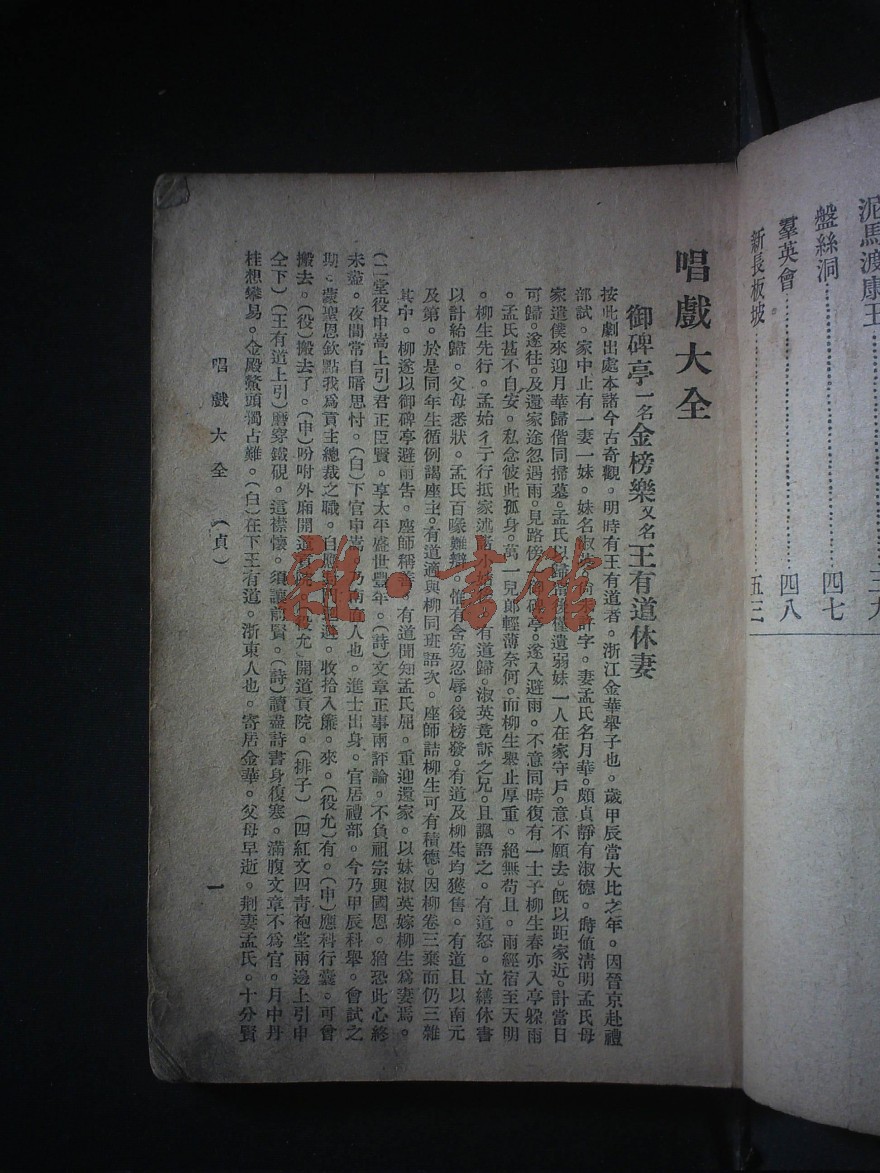 唱戲大全
御碑亭一名金榜樂又名王有道休妻
按此劇出處本諸今古奇觀。明時有王有道者。浙江金華舉子也。歲甲辰當大比之年。因晉京赴禮
部試。家中止有一妻一妹。妹名淑英。尚未許字。妻孟氏名月華。頗貞靜有淑德。時值清明孟氏母
家遣僕來迎月華歸偕同掃墓。孟氏以歸僅遺弱妹一人在家守戶。意不願去。旣以距家近。計當日
可歸。遂往。及還家途忽遇雨。見路傍御碑亭。遂入避雨。不意同時復有一士子柳生春亦入亭躲雨
。孟氏甚不自安。私念彼此孤身。萬一兒郎輕薄奈何。而柳生舉止厚重。絕無苟且。雨經宿至天明
。柳生先行。孟始彳亍行抵家述有道歸。淑英竟訴之兄。且諷語之。有道怒。立繕休書
以計紿歸。父母悉狀。孟氏百喙難辯。惟有含寃忍辱。後榜發。有道及柳生均獲售。有道且以南元
及第。於是同年生循例謁座主。有道適與柳同班語次。座師詰柳生可有積德。因柳卷三棄而仍三雜
其中。柳遂以御碑亭避雨告。座師稱善。有道聞知孟氏屈。重迎還家。以妹淑英嫁柳生爲妻焉。
(二堂役申嵩上引)君正臣賢。享太平盛世豐年。(詩)文章正事兩評論。不負祖宗與國恩。猶恐此心終
未盡。夜間常自暗思忖。(白)下官申嵩。乃南直人也。進士出身。官居禮部。今乃甲辰科舉。會試之
期。蒙聖恩欽點我爲貢主總裁之職。自應收拾入簾。來。(役允)有。(申)應科行囊。可曾
搬去。(役)搬去了。(申)吩咐外廂開道貢院。(役允)開道貢院。(排子)(四紅文四青袍堂兩邊上引申
仝下)(王有道上引)磨穿鐵硯。這襟懷。須讓前賢。(詩)讀盡詩書身復寒。滿腹文章不爲官。月中丹
桂想攀易。金殿鰲頭獨占難。(白)在下王有道。浙東人也。寄居金華。父母早逝。荆妻孟氏。十分賢
唱戲大全 (貞) 一
泥馬渡康王
盤絲洞 四七
羣英會 四八
新長板坡 五三
雜·書館